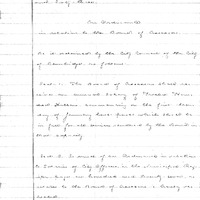 An Ordinance
in relation to the Board of Assessors.
Be it ordained by the City Council of the City
of Cambridge, as follows:
Sect. 1. The Board of Assessors shall
an annual salary of Twelve
commencing on the first
day of January last past, which shall be
in full for all services rendered by the Board in
that capacity.
Sect. 2. So much of an Ordinance in relation
to Salaries of City Officers, in the Municipal Reg
hundred and twenty
relates to the Board of Assessors is hereby